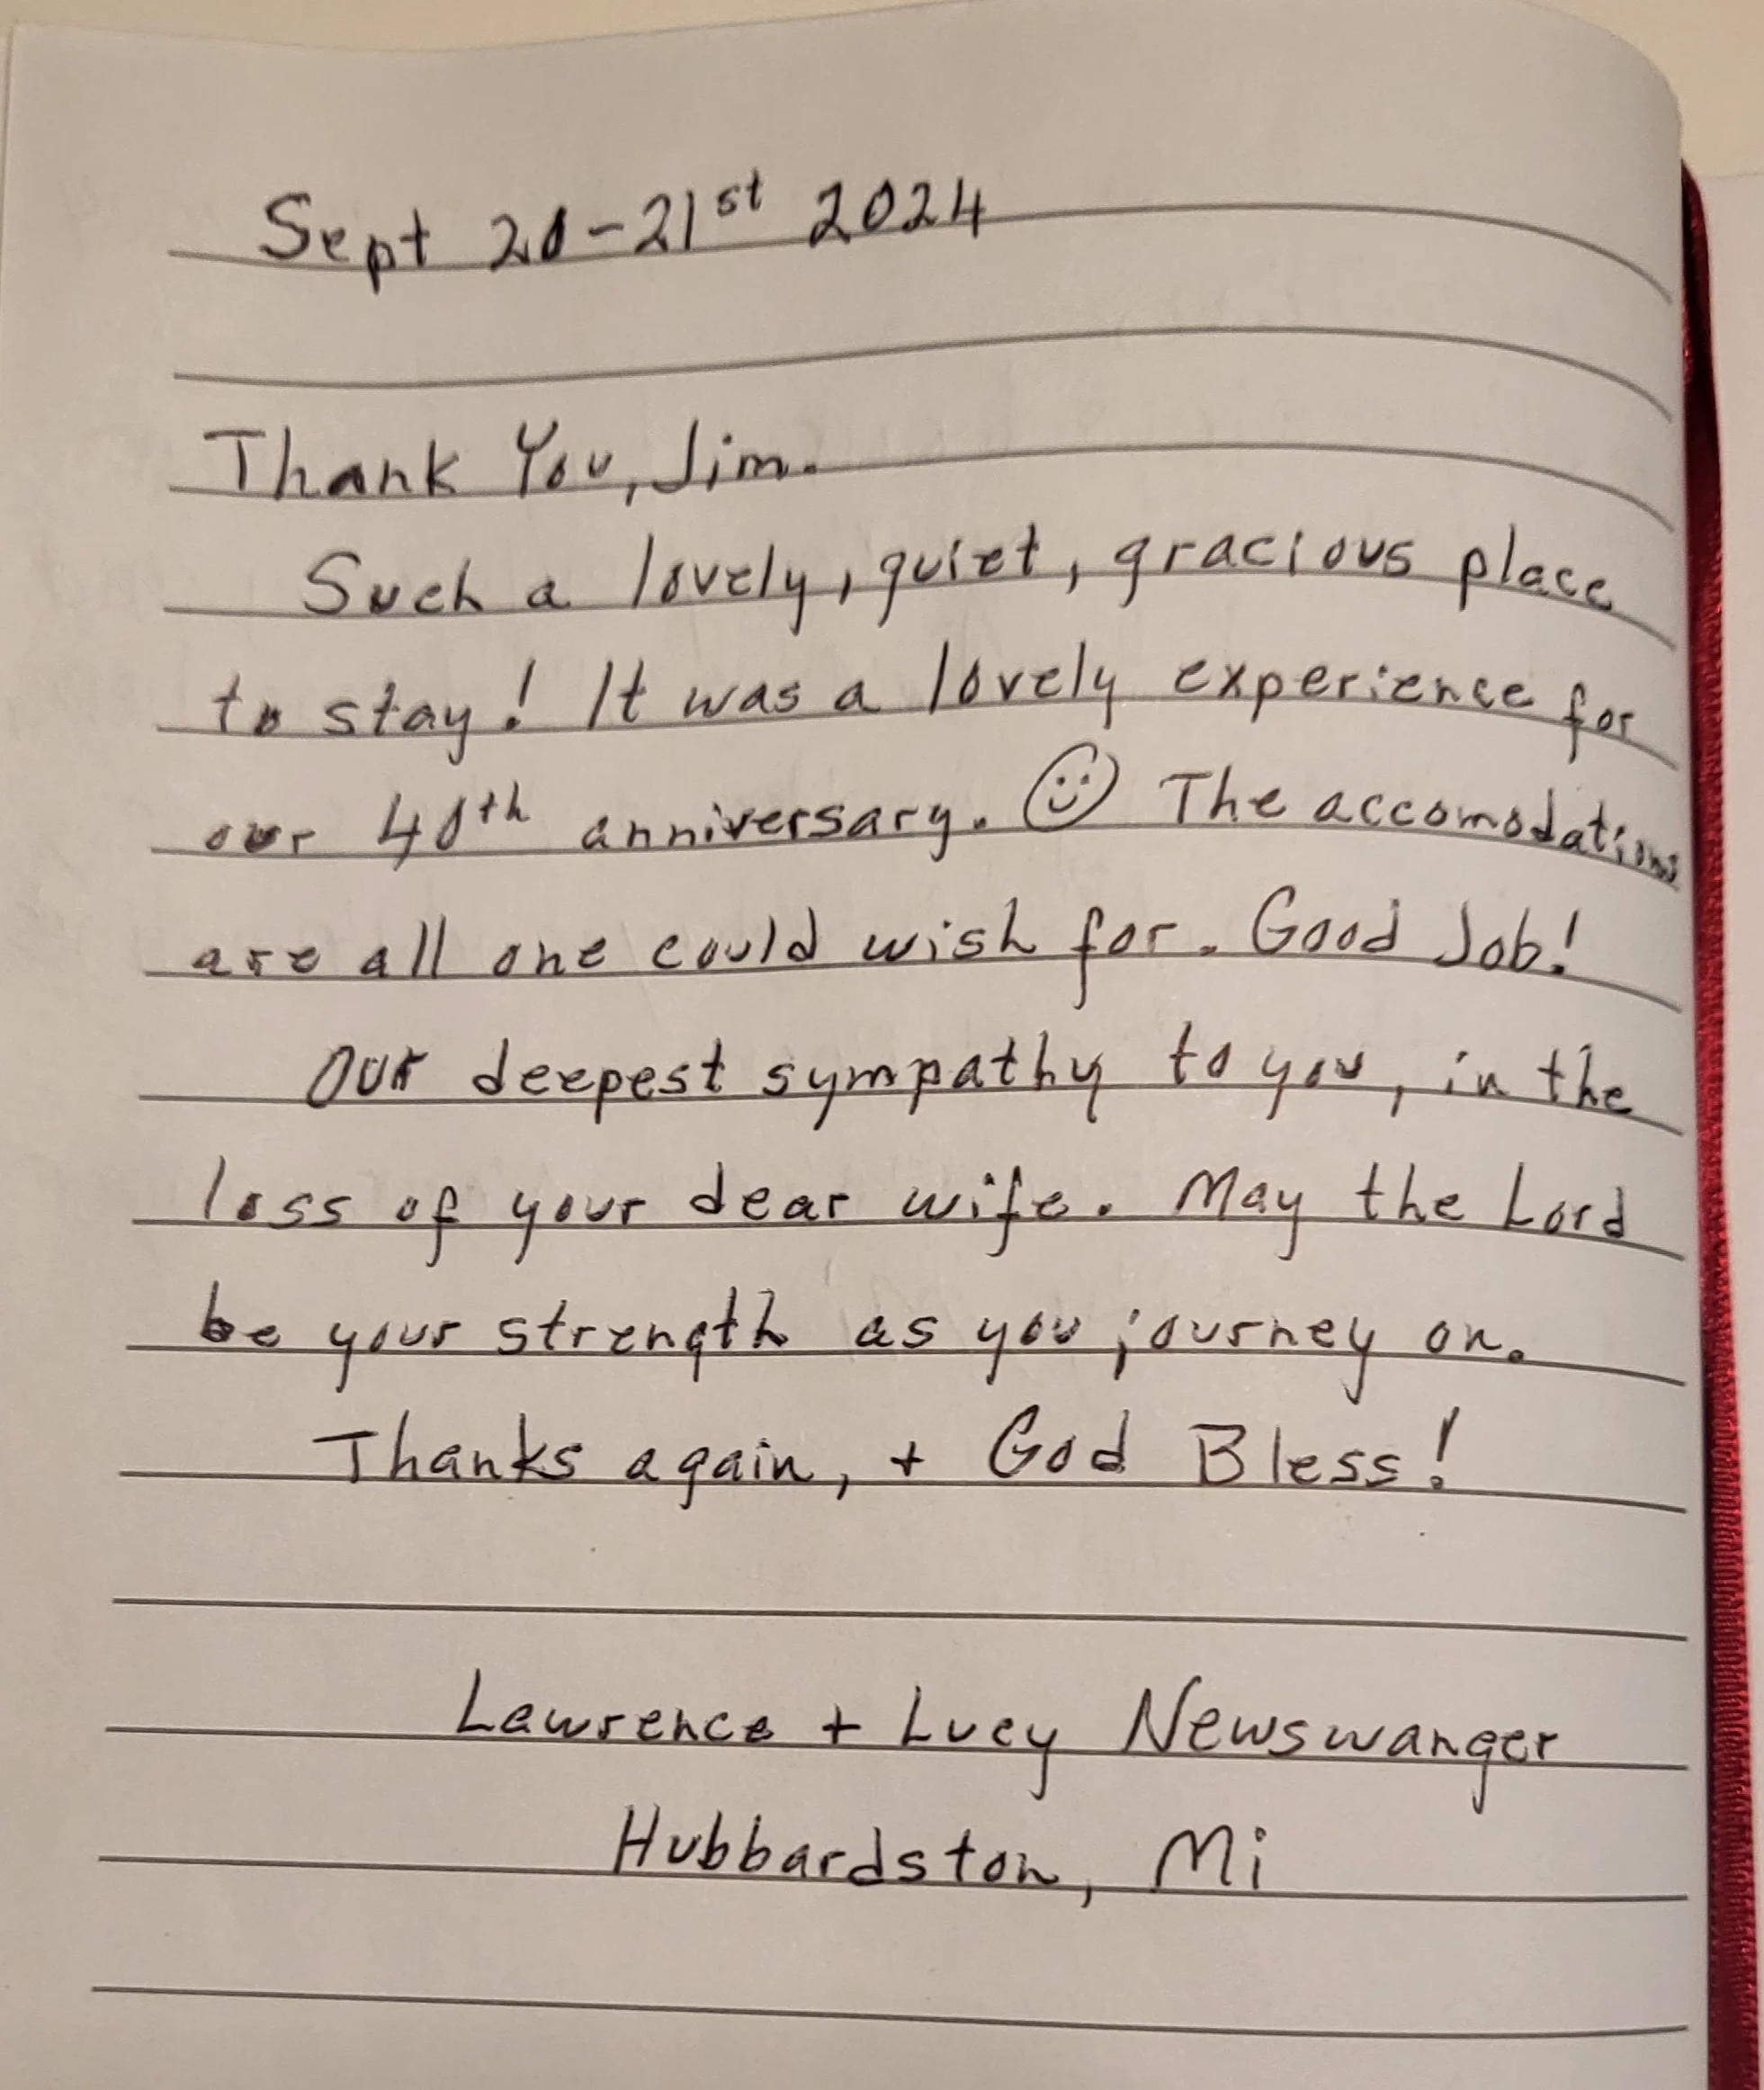 Sept 20-21st 2024
Thank You, Jim.
Such a lovely, quiet, gracious place
to stay! It was a lovely experience for
our 40th anniversary. ☺ The accomodations
are all one could wish for. Good Job!
Our deepest sympathy to you, in the
loss of your dear wife. May the Lord
be your strength as you journey on.
Thanks again, + God Bless!
Lawrence + Lucy Newswanger
Hubbardston, Mi